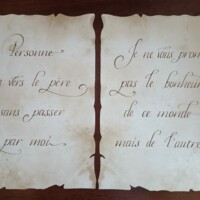 Personne
vers le père
sans passer
par moi
Je ne vous prom
pas le bonheur
de ce monde
mais de l'autre